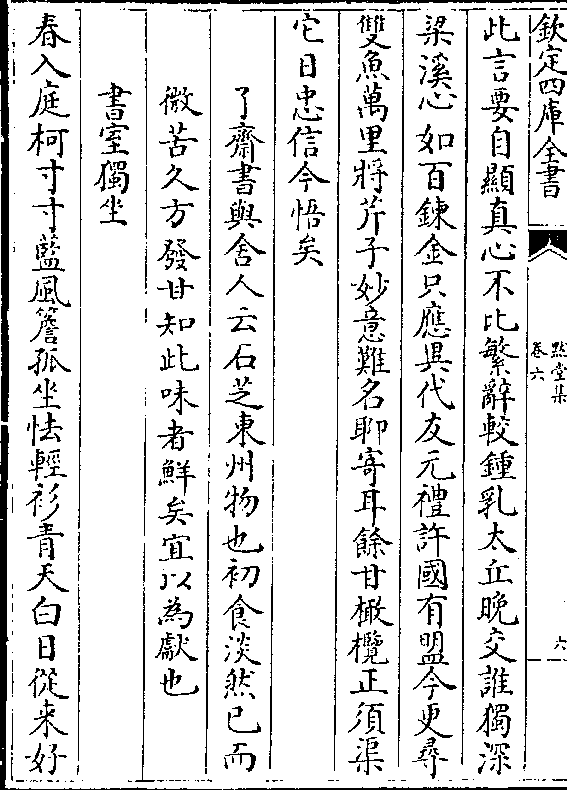 欽定四庫全書
黙堂集
卷六
六
此言要自顯真心不比繁辭較鍾乳太丘晚交誰獨深
梁溪心如百鍊金只應異代友元禮許國有盟今更尋
雙魚萬里將芹子妙意難名聊寄耳餘甘橄欖正須渠
它日忠信今悟矣
了齋書與舍人云石芝東州物也初食淡然已而
微苦久方發甘知此味者鮮矣宜以為獻也
書室獨坐
春入庭柯寸寸藍風簷孤坐怯輕衫青天白日從来好